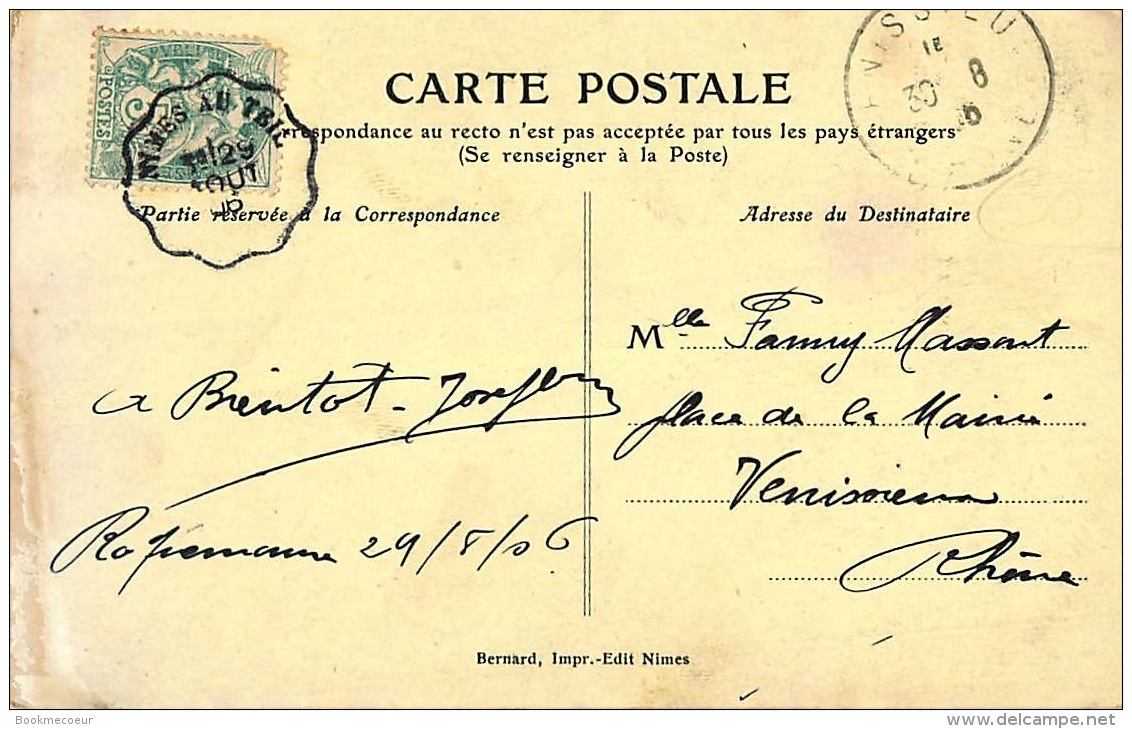 POSTES
NIMES AU TEIL
29
AOUT
06
VÉNISSIEUX
30 8
06
CARTE POSTALE
rrespondance au recto n'est pas acceptée par tous les pays étrangers
(Se renseigner à la Poste)
Partie réservée à la Correspondance
Adresse du Destinataire
a Bientot - Joseph
29/8/06
Mlle Fanny Massont
place de la Mairie
Venissieux
Rhône
Bernard, Impr.-Edit Nimes
Bookmecoeur
delcampe.net